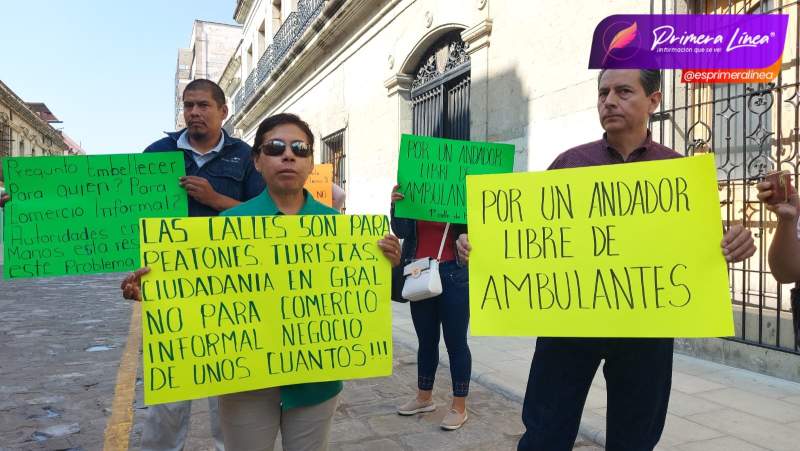 Primera Línea
¡Información que se ve!
@esprimeralinea
Pregunto Embellecer
Para quien? Para
Comercio Informal?
Autoridades en
Manos esta res
este Problema
LAS CALLES SON PARA
PEATONES, TURISTAS,
CIUDADANIA EN GRAL
NO PARA COMERCIO
INFORMAL NEGOCIO
DE UNOS CUANTOS!!!
POR UN ANDADOR
LIBRE DE
AMBULANTES
1ª calle de
NO
POR UN ANDADOR
LIBRE DE
AMBULANTES